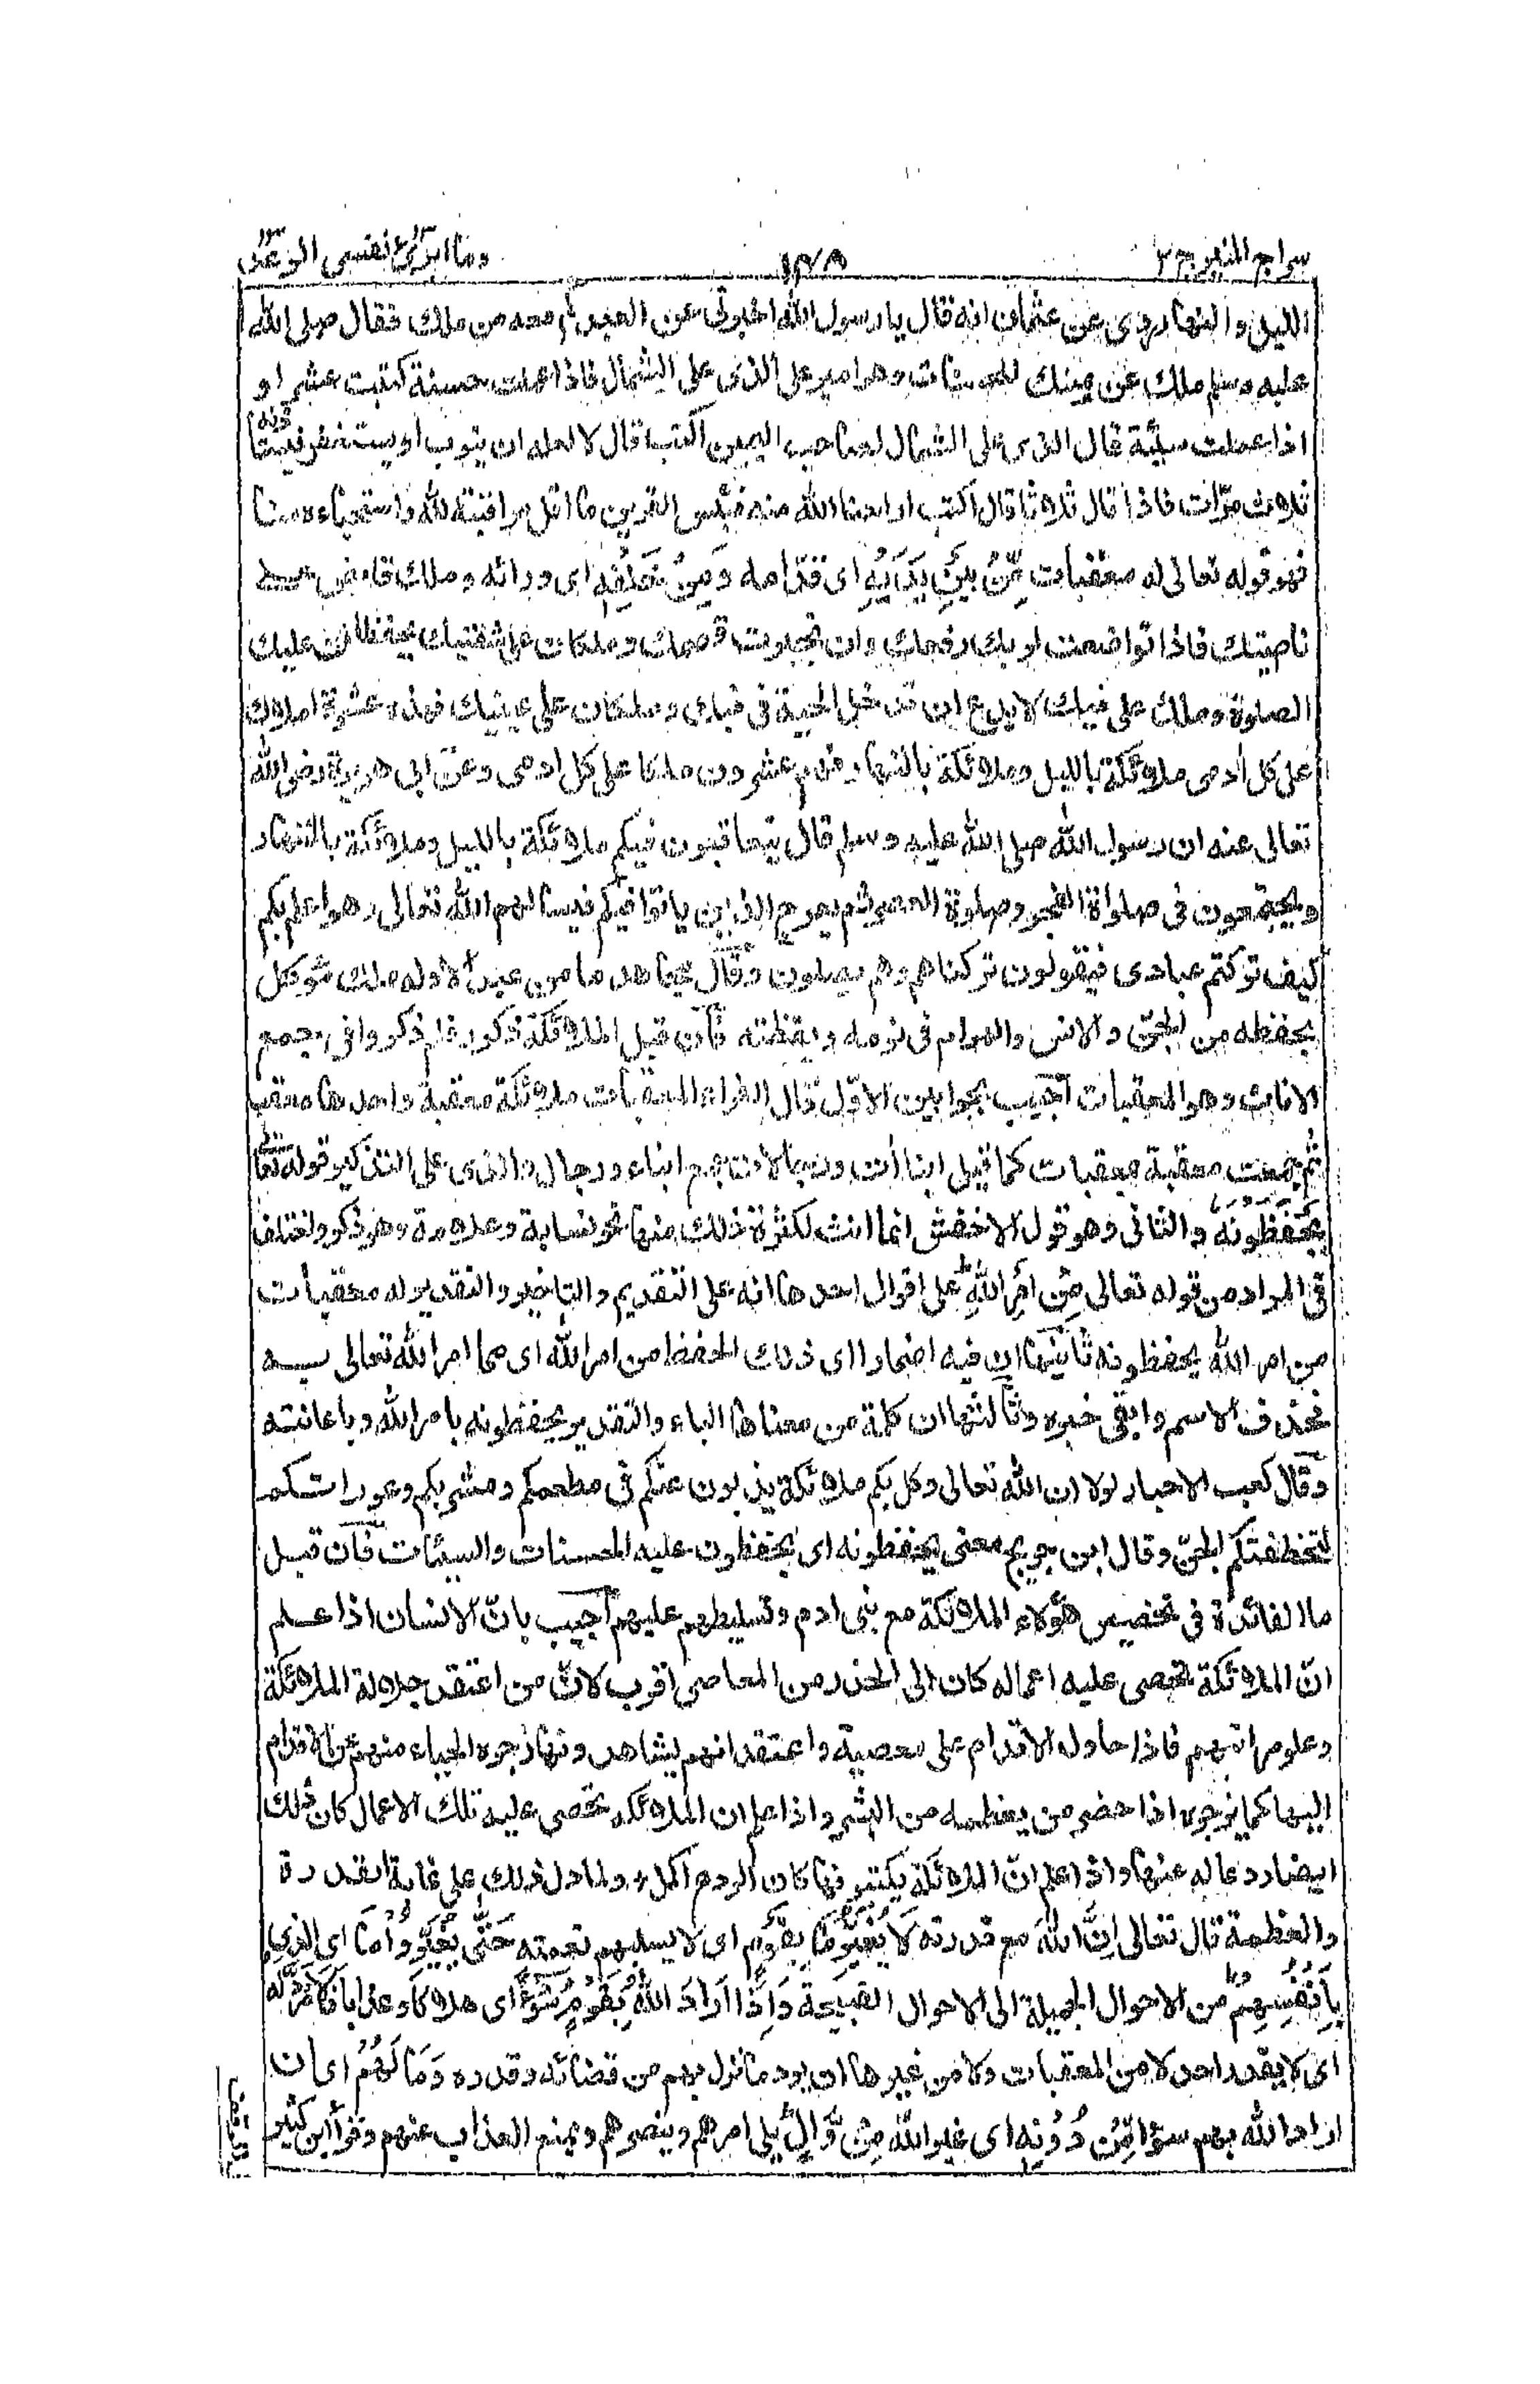 سراج المنير ج ٢ ١٤٨ وما ابرئ نفسى الرعد
الليل والنهار روى عن عثمان انه قال يا رسول الله اخبرنى عن العبد كم معه من ملك فقال صلى الله
عليه وسلم ملك عن يمينك للحسنات وهو امير على الذى على الشمال فاذا عملت حسنة كتبت عشر او
اذا عملت سيئة قال الذى على الشمال لصاحب اليمين اكتب قال لا لعله ان يتوب او يستغفر فيستأذنه
ثلاث مرّات فاذا قال ثلاثا قال اكتب اراحنا الله منه فبئس القرين ما اقل مراقبته لله واستحياءه منا
فهو قوله تعالى له معقبات مِّنْ بَيْنِ يَدَيْهِ اى قدّامه وَمِنْ خَلْفِهِ اى ورائه وملك قابض على
ناصيتك فاذا تواضعت لربك رفعك وان تجبرت قصمك وملكان على شفتيك يحفظان عليك
الصلوة وملك على فيك لا يدع ان تدخل الحية فى فيك وملكان على عينيك فهذه عشرة املاك
على كل أدمى ملائكة بالليل وملائكة بالنهار فهم عشرون ملكا على كل ادمى وعن ابى هريرة رضى الله
تعالى عنه ان رسول الله صلى الله عليه وسلم قال يتعاقبون فيكم ملائكة بالليل وملائكة بالنهار
ويجتمعون فى صلواة الفجر وصلوة العصر ثم يعرج الذين باتوا فيكم فيسالهم الله تعالى وهو اعلم بكم
كيف تركتم عبادى فيقولون تركناهم وهم يصلون وقال مجاهد ما من عبد الا وله ملك موكل
يحفظه من الجنّ والانس والهوام فى نومه ويقظته فان قيل الملائكة ذكور فلم ذكروا فى جمع
الاناث وهو المعقبات اجيب بجوابين الاوّل قال الفراء المعقبات ملائكة معقبة واحدها معقب
ثم جمعت معقبة معقبات كما قيل ابناأت ورجالات جمع ابناء ورجال والذى على التذكير قوله تعا
يَحْفَظُوْنَهُ والثانى وهو قول الاخفش انما انث لكثرة ذلك منها نحو نسابة وعلامة وهو ذكر واختلف
فى المراد من قوله تعالى مِنْ اَمْرِ اللهِ على اقوال احدها انه على التقديم والتاخير والتقدير له معقبأت
من امر الله يحفظونه ثانيها ان فيه اضمارا اى ذلك الحفظ من امر الله اى مما امر الله تعالى بــه
فحذف الاسم وابقى خبره وثالثها ان كلمة من معناها الباء والتقدير يحفظونه بامر الله وباعانته
وقال كعب الاحبار لولا ان الله تعالى وكل بكم ملائكة يذبون عنكم فى مطعمكم ومشربكم وعوراتكم
لتخطفتكم الجنّ وقال ابن جريج معنى يحفظونه اى يحفظون عليه الحسنات والسيئات فان قيل
ما الفائدة فى تخصيص هؤلاء الملائكة مع بنى ادم وتسليطهم عليهم اجيب بانّ الانسان اذا علم
انّ الملائكة تحصى عليه اعماله كان الى الحذر من المعاصى اقرب لانّ من اعتقد جلالة الملائكة
وعلو مراتبهم فاذا حاول الاقدام على معصية واعتقد انهم يشاهدونها زجره الحياء منهم عن الاقدام
اليها كما يزجره اذا حضر من يعظمه من البشر واذا علم ان الملائكه تحصى عليه تلك الاعمال كان ذلك
ايضا ردعا له عنها واذا علم انّ الملائكة يكتبونها كان الردع اكمل ولما دل ذلك على غاية القدرة
والعظمة قال تعالى اِنَّ اللهَ مع قدرته لَا يُغَيِّرُ مَا بِقَوْمٍ اى لا يسلبهم نعمته حَتّٰى يُغَيِّرُوْا مَا اى الذى
بِاَنْفُسِهِمْ من الاحوال الجميلة الى الاحوال القبيحة وَاِذَا اَرَادَ اللهُ بِقَوْمٍ سُوْٓءًا اى هلاكا وعذابا فَلَا مَرَدَّ لَهُ
اى لا يقدر احد لا من المعقبات ولا من غيرها ان يرد ما نزل بهم من قضائه وقدره وَمَا لَهُمْ اى ان
اراد الله بهم سؤا مِّنْ دُوْنِهٖ اى غير الله مِنْ وَّالٍ يلى امرهم وينصرهم ويمنع العذاب عنهم وقرأ ابن كثير